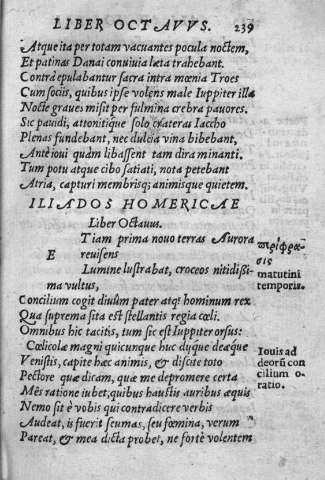 LIBER OCTAVVS. 239
Atque ita per totam vacuantes pocula noctem,
Et patinas Danai conuiuia læta trahebant.
Contrà epulabantur sacra intra mœnia Troes
Cum socijs, quibus ipse volens male Iuppiter illa
Nocte graues misit per fulmina crebra pauores.
Sic pauidi, attonitique solo crateras Iaccho
Plenas fundebant, nec dulcia vina bibebant,
Antè ioui quàm libassent tam dira minanti.
Tum potu atque cibo satiati, nota petebant
Atria, capturi membrisq; animisque quietem.
ILIADOS HOMERICAE
Liber Octauus.
ETiam prima nouo terras Aurora
reuisens
Lumine lustrabat, croceos nitidißi-
ma vultus,
περίφρα-
σις
matutini
temporis.
Concilium cogit diuûm pater atq; hominum rex
Qua suprema sita est stellantis regia cœli.
Omnibus hic tacitis, tum sic est Iuppiter orsus:
Cœlicolæ magni quicunque huc duque deæque
Venistis, capite hæc animis, & discite toto
Pectore quæ dicam, quæ me depromere certa
Mẽs ratione iubet, quibus haustis auribus æquis
Nemo sit è vobis qui contradicere verbis
Audeat, is fuerit seu mas, seu fœmina, verum
Pareat, & mea dicta probet, ne fortè volentem
Iouis ad
deorũ con
cilium o-
ratio.